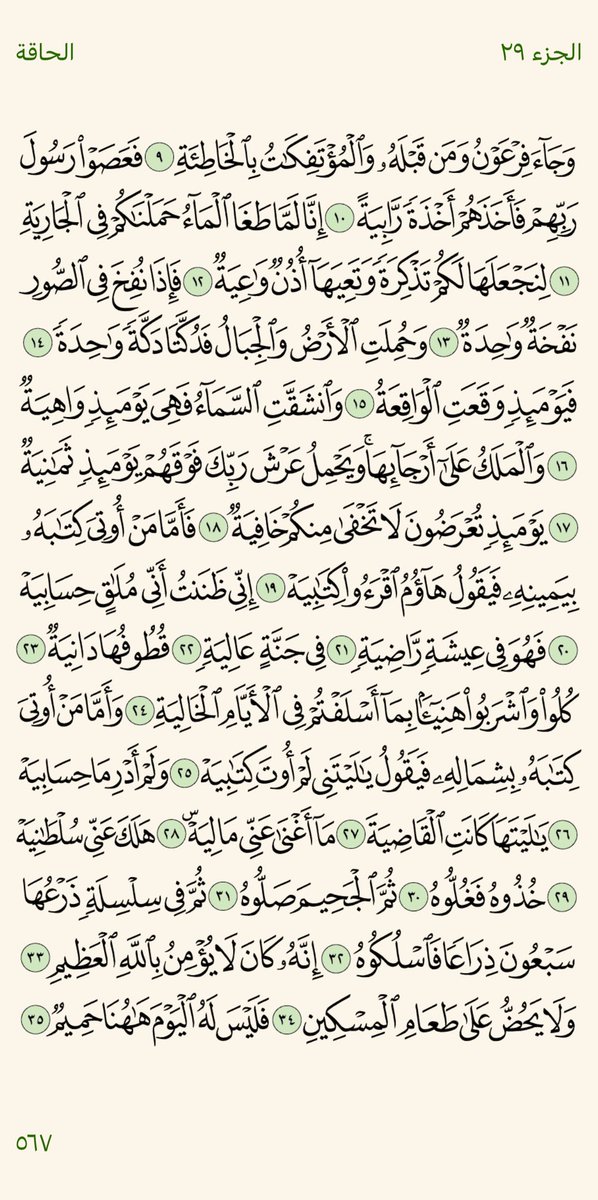 الجزء ٢٩
الحاقة
وَجَآءَ فِرْعَوْنُ وَمَن قَبْلَهُۥ وَٱلْمُؤْتَفِكَٰتُ بِٱلْخَاطِئَةِ ٩ فَعَصَوْا۟ رَسُولَ
رَبِّهِمْ فَأَخَذَهُمْ أَخْذَةً رَّابِيَةً ١٠ إِنَّا لَمَّا طَغَا ٱلْمَآءُ حَمَلْنَٰكُمْ فِى ٱلْجَارِيَةِ
١١ لِنَجْعَلَهَا لَكُمْ تَذْكِرَةً وَتَعِيَهَآ أُذُنٌ وَٰعِيَةٌ ١٢ فَإِذَا نُفِخَ فِى ٱلصُّورِ
نَفْخَةٌ وَٰحِدَةٌ ١٣ وَحُمِلَتِ ٱلْأَرْضُ وَٱلْجِبَالُ فَدُكَّتَا دَكَّةً وَٰحِدَةً ١٤
فَيَوْمَئِذٍ وَقَعَتِ ٱلْوَاقِعَةُ ١٥ وَٱنشَقَّتِ ٱلسَّمَآءُ فَهِىَ يَوْمَئِذٍ وَاهِيَةٌ
١٦ وَٱلْمَلَكُ عَلَىٰٓ أَرْجَآئِهَا ۚ وَيَحْمِلُ عَرْشَ رَبِّكَ فَوْقَهُمْ يَوْمَئِذٍ ثَمَٰنِيَةٌ
١٧ يَوْمَئِذٍ تُعْرَضُونَ لَا تَخْفَىٰ مِنكُمْ خَافِيَةٌ ١٨ فَأَمَّا مَنْ أُوتِىَ كِتَٰبَهُۥ
بِيَمِينِهِۦ فَيَقُولُ هَآؤُمُ ٱقْرَءُوا۟ كِتَٰبِيَهْ ١٩ إِنِّى ظَنَنتُ أَنِّى مُلَٰقٍ حِسَابِيَهْ
٢٠ فَهُوَ فِى عِيشَةٍ رَّاضِيَةٍ ٢١ فِى جَنَّةٍ عَالِيَةٍ ٢٢ قُطُوفُهَا دَانِيَةٌ ٢٣
كُلُوا۟ وَٱشْرَبُوا۟ هَنِيٓـًٔۢا بِمَآ أَسْلَفْتُمْ فِى ٱلْأَيَّامِ ٱلْخَالِيَةِ ٢٤ وَأَمَّا مَنْ أُوتِىَ
كِتَٰبَهُۥ بِشِمَالِهِۦ فَيَقُولُ يَٰلَيْتَنِى لَمْ أُوتَ كِتَٰبِيَهْ ٢٥ وَلَمْ أَدْرِ مَا حِسَابِيَهْ
٢٦ يَٰلَيْتَهَا كَانَتِ ٱلْقَاضِيَةَ ٢٧ مَآ أَغْنَىٰ عَنِّى مَالِيَهْ ۜ ٢٨ هَلَكَ عَنِّى سُلْطَٰنِيَهْ
٢٩ خُذُوهُ فَغُلُّوهُ ٣٠ ثُمَّ ٱلْجَحِيمَ صَلُّوهُ ٣١ ثُمَّ فِى سِلْسِلَةٍ ذَرْعُهَا
سَبْعُونَ ذِرَاعًا فَٱسْلُكُوهُ ٣٢ إِنَّهُۥ كَانَ لَا يُؤْمِنُ بِٱللَّهِ ٱلْعَظِيمِ ٣٣
وَلَا يَحُضُّ عَلَىٰ طَعَامِ ٱلْمِسْكِينِ ٣٤ فَلَيْسَ لَهُ ٱلْيَوْمَ هَٰهُنَا حَمِيمٌ ٣٥
٥٦٧